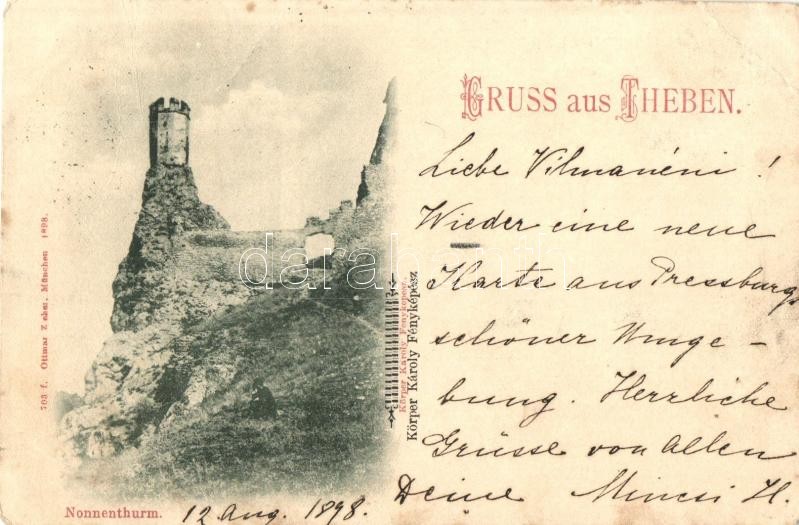 GRUSS aus THEBEN.
Liebe Vilmanéni!
Wieder eine neue
Karte aus Pressburgs
schöner Umge-
bung. Herrliche
Grüsse von Allen
Deine Minesi H.
12 Aug. 1898.
Nonnenthurm.
703 f. Ottmar Zieher, München 1898.
Körper Károly Fényképész
Körper Károly Fényképész
darabanth